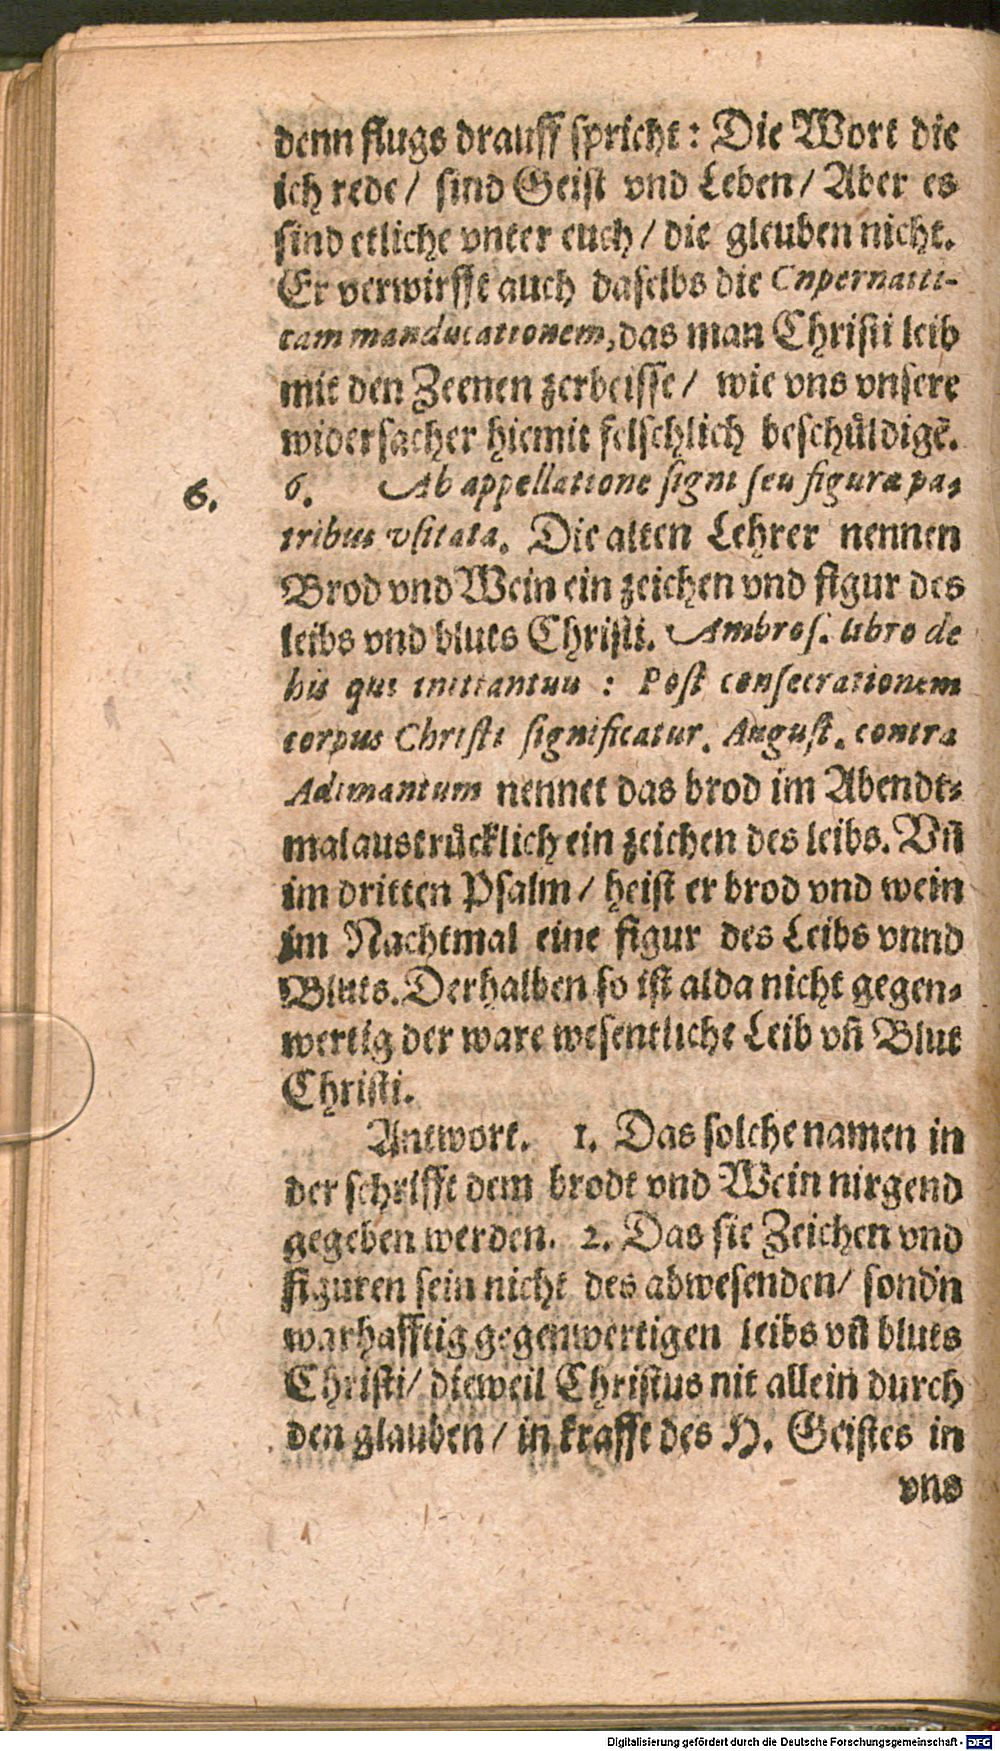 denn flugs drauff spricht: Die Wort die
ich rede/ sind Geist vnd Leben/ Aber es
sind etliche vnter euch/ die gleuben nicht.
Er verwirfft auch daselbs die Cnpernaiti-
cam manducationem, das man Christi leib
mit den Zeenen zerbeisse/ wie vns vnsere
widersacher hiemit felschlich beschüldigē.
6. 6. Ab appellatione signi seu figuræ pa-
tribus vsitata. Die alten Lehrer nennen
Brod vnd Wein ein zeichen vnd figur des
leibs vnd bluts Christi. Ambros. libro de
his qui initiantuu : Post consecrationem
corpus Christi significatur. August. contra
Adimantum nennet das brod im Abendt-
mal austrücklich ein zeichen des leibs. Vñ
im dritten Psalm/ heist er brod vnd wein
im Nachtmal eine figur des Leibs vnnd
Bluts. Derhalben so ist alda nicht gegen-
wertig der ware wesentliche Leib vñ Blut
Christi.
Antwort. 1. Das solche namen in
der schrifft dem brodt vnd Wein nirgend
gegeben werden. 2. Das sie Zeichen vnd
figuren sein nicht des abwesenden/ sond'n
warhafftig gegenwertigen leibs vñ bluts
Christi/ dieweil Christus nit allein durch
den glauben/ in krafft des H. Geistes in
vns
Digitalisierung gefördert durch die Deutsche Forschungsgemeinschaft - DFG